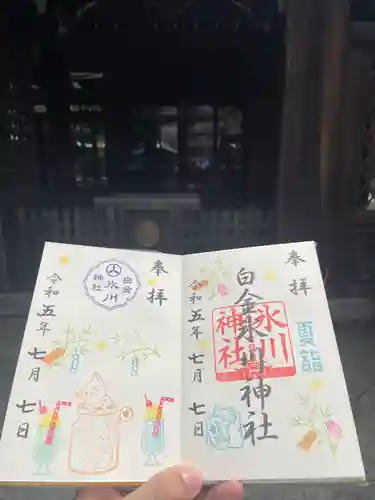 奉拝
白金氷川神社
夏詣
氷川神社
令和五年七月七日
奉拝
白金
氷川
神社
令和五年七月七日